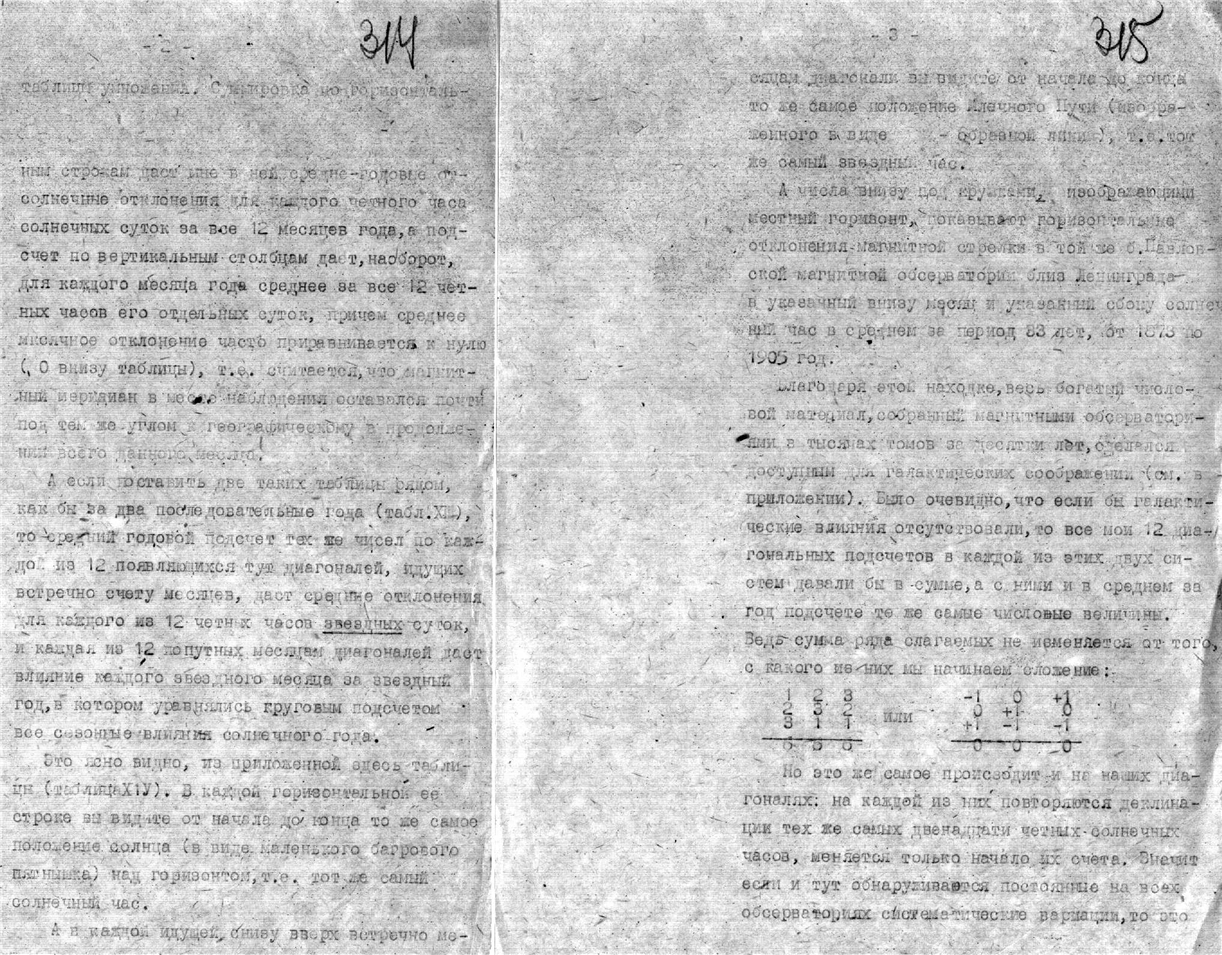 314
- 2 -
таблицы умножения. Суммировка по горизонталь-
ным строкам даст мне в ней средне-годовые
солнечные отклонения для каждого четного часа
солнечных суток за все 12 месяцев года,а под-
счет по вертикальным столбцам дает,наоборот,
для каждого месяца года среднее за все 12 чет-
ных часов его отдельных суток, причем среднее
месячное отклонение часто приравнивается к нулю
(, 0 внизу таблицы), т.е. считается,что магнит-
ный меридиан в месте наблюдения оставался почти
под тем же углом к географическому в продолже-
нии всего данного месяца.
А если поставить две таких таблицы рядом,
как бы за два последовательные года (табл.XШ),
то средний годовой подсчет тех же чисел по каж-
дой из 12 появляющихся тут диагоналей, идущих
встречно счету месяцев, даст средние отклонения
для каждого из 12 четных часов звездных суток,
и каждая из 12 попутных месяцам диагоналей даст
влияние каждого звездного месяца за звездный
год,в котором уравнялись круговым подсчетом
все сезонные влияния солнечного года.
Это ясно видно, из приложенной здесь табли-
цы (таблицаХ1У). В каждой горизонтальной ее
строке вы видите от начала до конца то же самое
положение солнца (в виде маленького багрового
пятнышка) над горизонтом,т.е. тот же самый
солнечный час.
А в каждой идущей снизу вверх встречно ме-
315
- 3 -
сяцам диагонали вы видите от начала до конца
то же самое положение Млечного Пути (изобра-
женного в виде - образной линии), т.е.тот
же самый звездный час.
А числа внизу под кружками, изображающими
местный горизонт, показывают горизонтальные
отклонения магнитной стрелки в той же б.Павлов-
ской магнитной обсерватории близ Ленинграда
в указанный внизу месяц и указанный сбоку солнеч
ный час в среднем за период 33 лет, от 1873 по
1905 год.
Благодаря этой находке,весь богатый число-
вой материал,собранный магнитными обсерватори-
ями в тысячах томов за десятки лет,сделался
доступным для галактических соображений (см. в
приложении). Было очевидно,что если бы галакти-
ческие влияния отсутствовали,то все мои 12 диа-
гональных подсчетов в каждой из этих двух си-
стем давали бы в сумме,а с ними и в среднем за
год подсчете те же самые числовые величины.
Ведь сумма ряда слагаемых не изменяется от того,
с какого из них мы начинаем сложение:
1 2 3 -1 0 +1
2 3 2 или 0 +1 0
3 1 1 +1 -1 -1
6 6 6 0 0 0
Но это же самое происходит и на наших диа-
гоналях: на каждой из них повторяются деклина-
ции тех же самых двенадцати четных солнечных
часов, меняется только начало их счета. Значит
если и тут обнаруживаются постоянные на всех
обсерваториях систематические вариации,то это